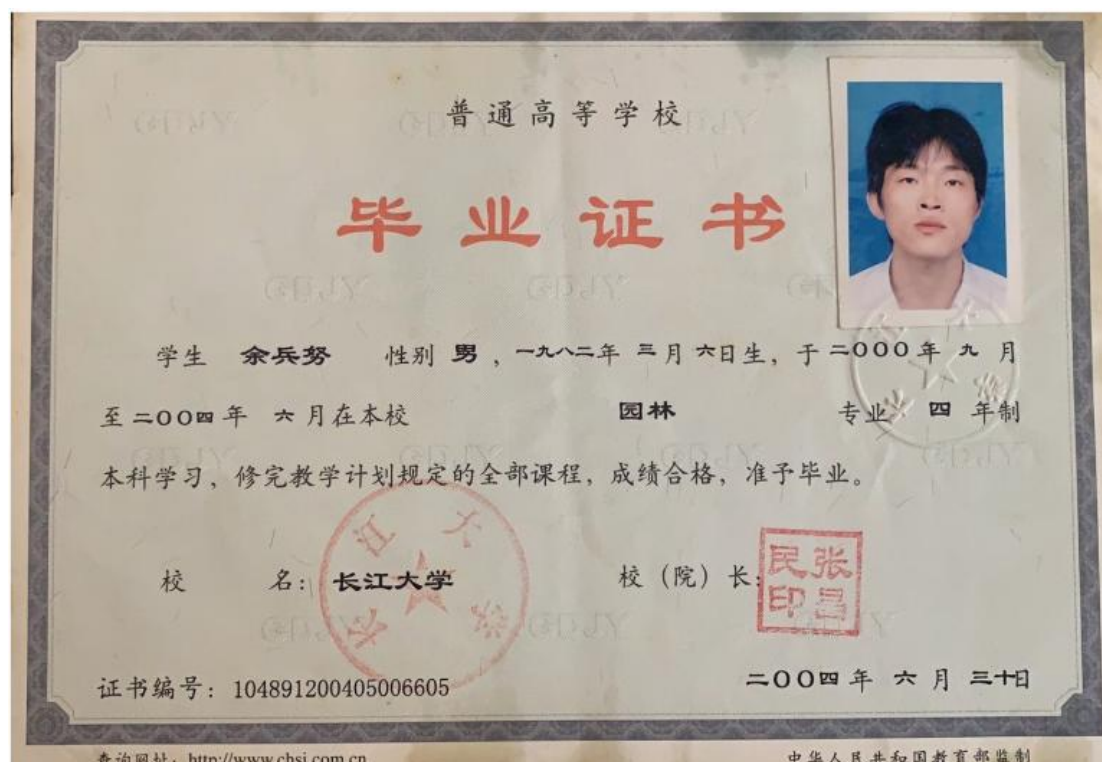 普通高等学校
毕业证书
学生 余兵努 性别 男，一九八二年 三月 六日生，于 二000年 九月
至 二00四年 六月在本校 园林 专业 四 年制
本科学习，修完教学计划规定的全部课程，成绩合格，准予毕业。
校 名：长江大学 校（院）长：
长江大学
张昌民印
证书编号：104891200405006605
二00四年 六月 三十日
查询网址：http://www.chsi.com.cn
中华人民共和国教育部监制